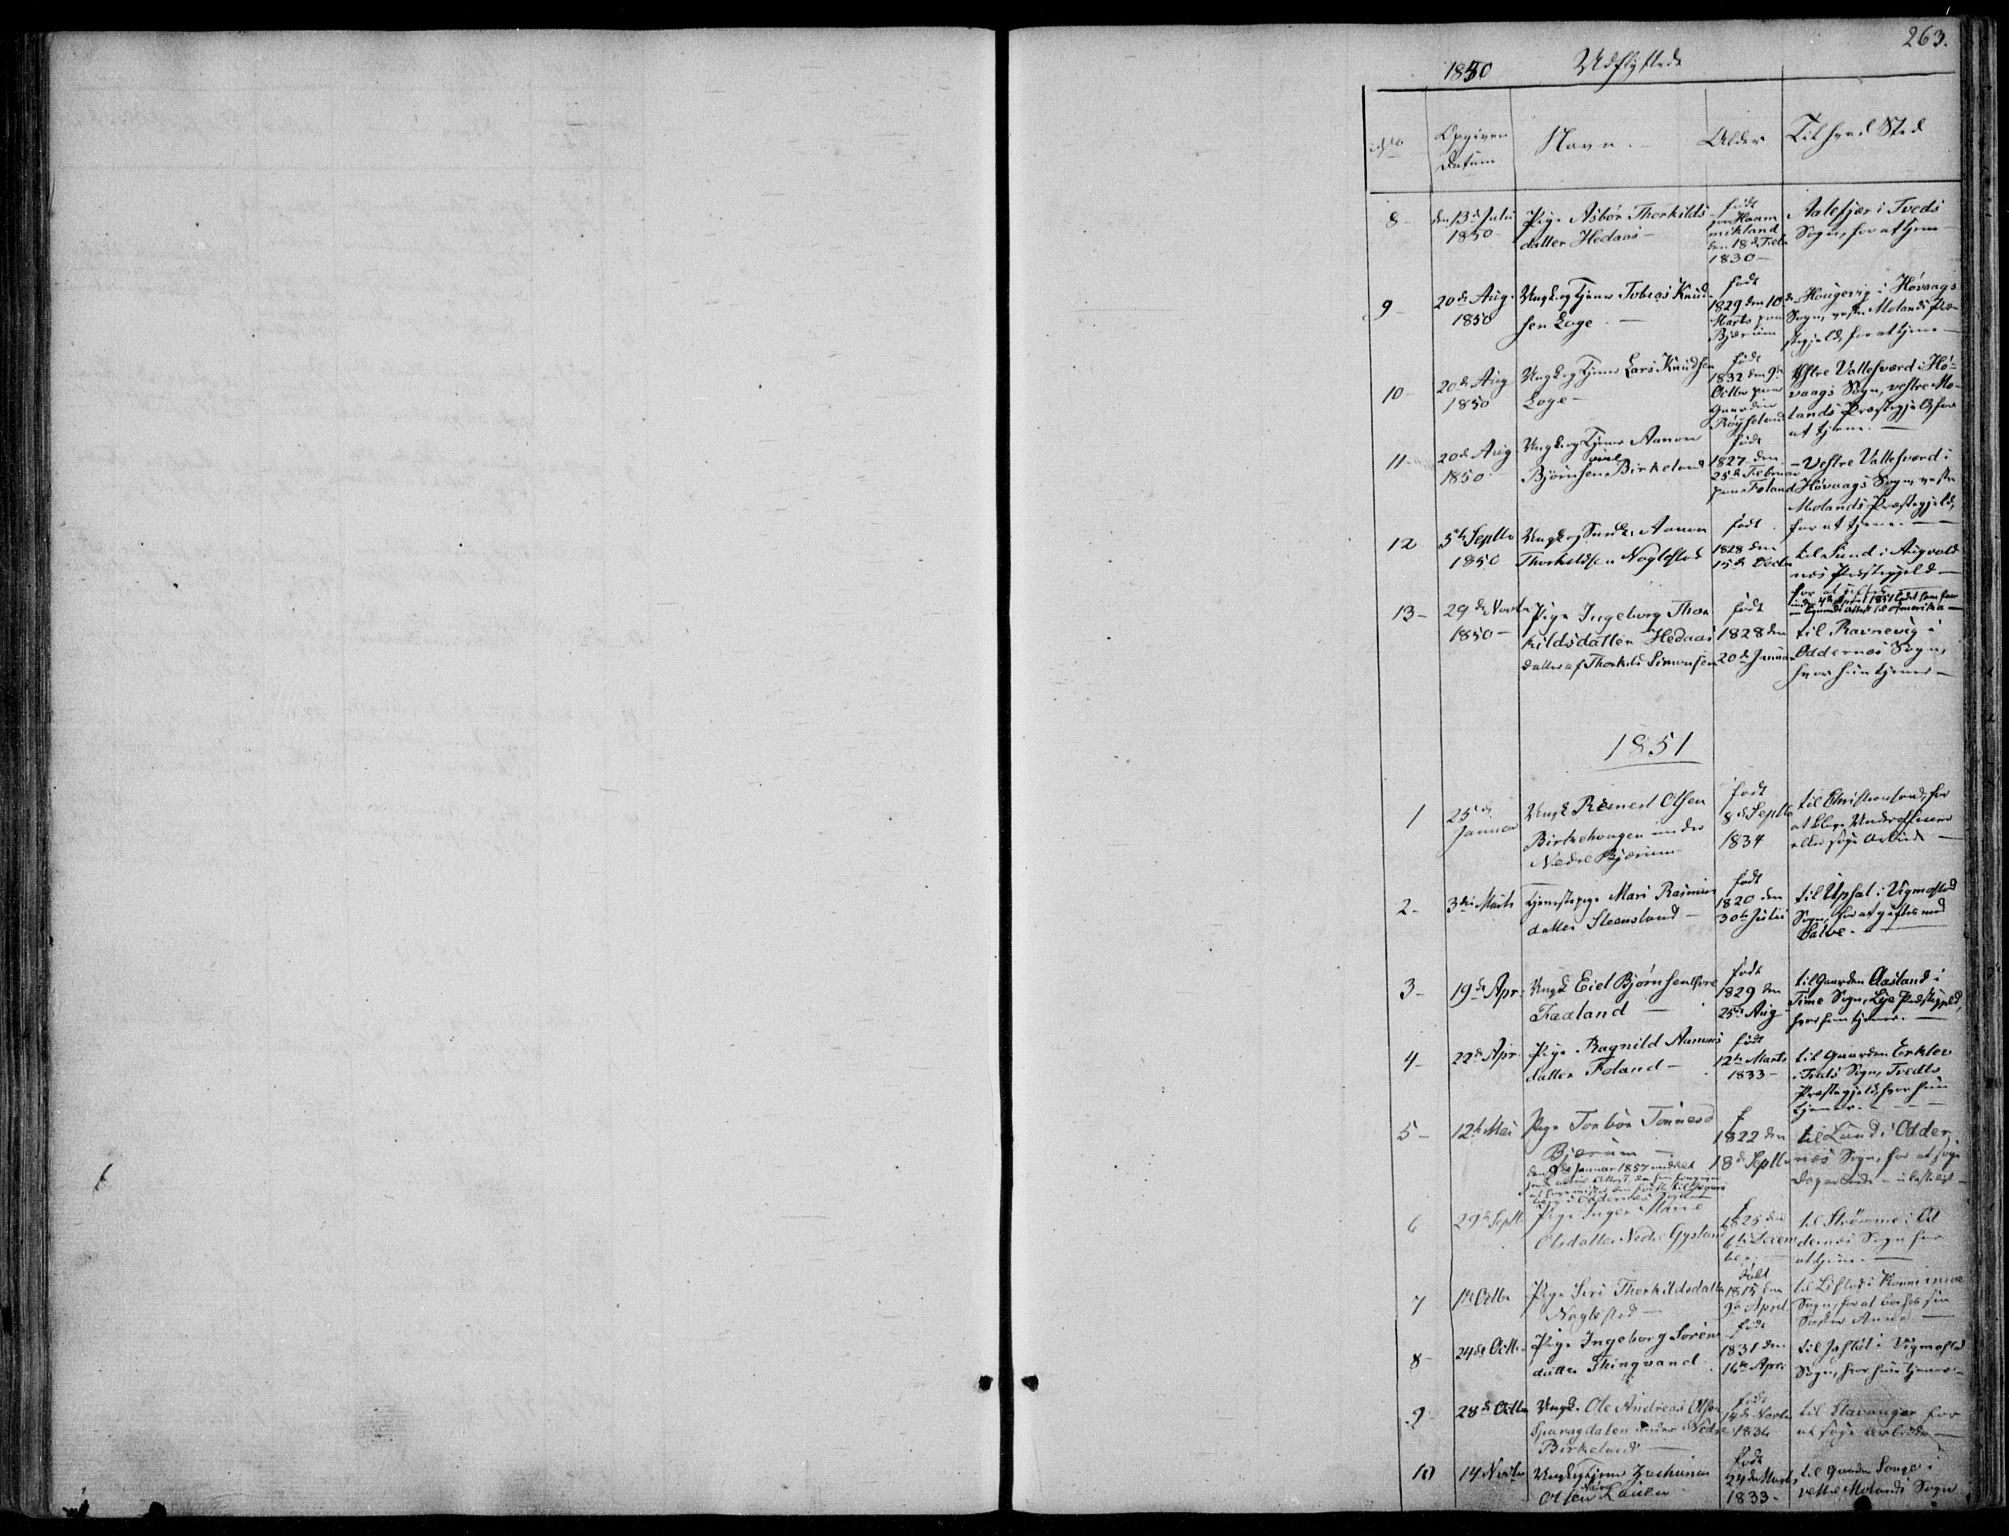 263.
1850 Udflyttede
No Opgiven Datum Navn. Alder Til hvad Sted
8 den 13de Juli 1850 Pige Asbør Thorkilds-
datter Hedaas
født paa Haam
mikland
den 18de Febr
1830
Aalefjær i Tveds
Sogn, for at tjene
9 20de Aug. 1850
Ungk og Tjener Tobias Knud-
sen Loge
født
1829 den 10de
Marts paa
Bjærum
Hougevig i Høvaags
Sogn, vestre Molands Præ-
stegjeld, for at tjene
10 20de Aug 1850
Ungk og Tjener Lars Knudsen
Loge
født
1832 den 9de
Octbr paa
Gaarden
Røyseland
Østre Vallesværd i Hø-
vaags Sogn, vestre Mo-
lands Præstegjeld, for
at tjene.
11 20de Aug 1850
Ungk og Tjener Aanon
Bjørnsen Birkeland
født
1827 den
25de Februar
paa Foland
Vestre Vallesværd i
Høvaags Sogn, vestre
Molands Præstegjeld,
for at tjene.
12 5te Septbr 1850
Ungk og Aanon
Thorkildsen Noglestad
født
1828 den
15de Decbr
til Lund i
nes Præstegjeld
13 29de Novbr 1850
Pige Ingeborg Thor
kildsdatter Hedaas
datter af Thorkild Simonsen
født
1828 den
20de Januar
til Ravnevig i
Oddernes Sogn,
hvor hun tjener
1851
1 25de Januar
Ungk Reinert Olsen
Birkehaugen under
Nedre Bjærum
født
8de Septbr
1834
til Christiansand, for
at blive Underofficeer
eller søge Arbeide
2 3die Marts
Tjenestepige Mari Rasmus
datter Steensland
født
1820 den
30te Juli
til Upsal i Vigmostad
Sogn, for at giftes med
Salve.
3 19de Apr.
Ungk Eiel Bjørnsen
Faaland
født
1829 den
25de Aug
til Gaarden Aasland i
Time Sogn, Lye Præstegjeld,
hvor han tjener.
4 22de Apr.
Pige Ragnild Aanons
datter Foland
født
12te Marts
1833
til Gaarden Erklev
i Tveds Sogn, Tvedts
Præstegjeld, hvor hun
tjener.
5 12te Mai
Pige Torbør Tønnesd
Bjærum
f
1822 den
18de Septbr
til Lund i Odder-
nes Sogn, for at søge
6 29de Septbr
Pige Inger Marie
Olsdatter Nedre Gysland
f
1825 den
6te
til Strømme i Od
dernes Sogn for
at tjene.
7 1ste Octbr
Pige Siri Thorkildsdatter
Noglestad
født
1815 den
9de April
Sogn, for at hos sin
Søster Anne
8 24de Octbr
Pige Ingeborg Søren
datter Thingvand
født
1831 den
16de April
til i Vigmostad
Sogn, hvor hun tjener.
9 28de Octbr
Ungk. Ole Andreas Olsen
Sparagdalen under Nedre
Birkeland
født
14de Novbr
1834
til Stavanger for
at søge Arbeide
10 14 Novbr
Ungk og Tjener Zacharias
Olsen Nedre Lauen
født
24de Marts
1833
til Gaarden Songe i
vestre Molands Sogn